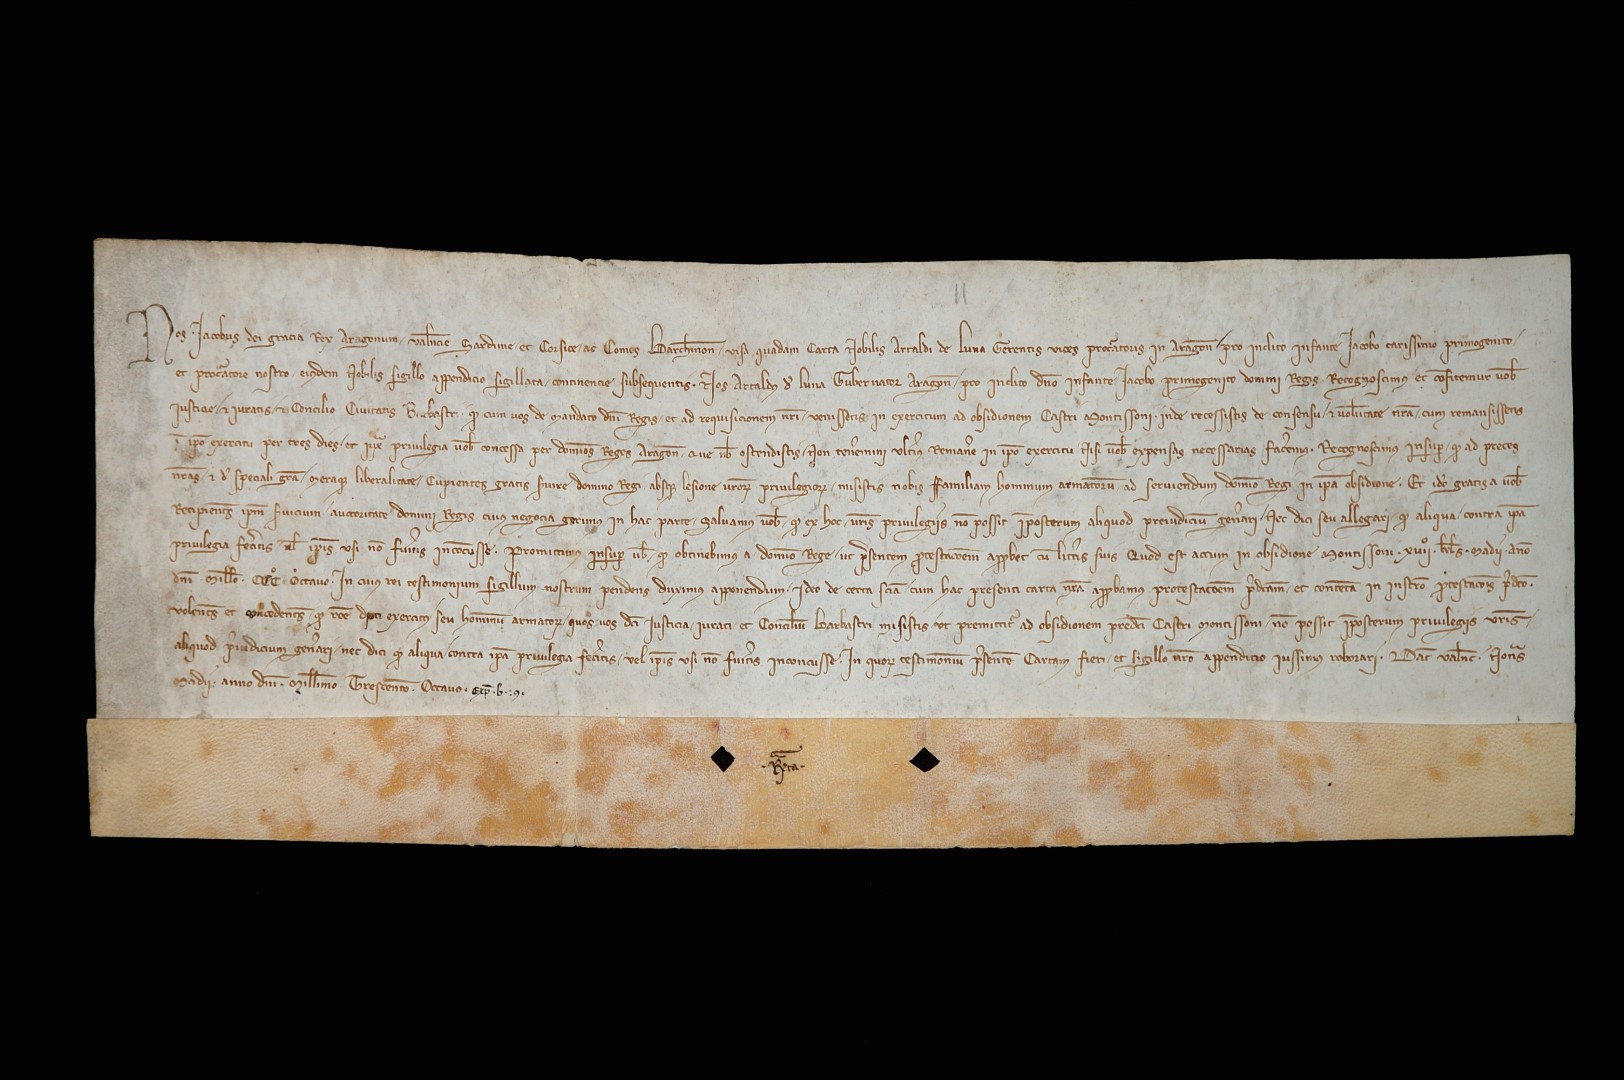 11
Nos Jacobus dei gracia Rex Aragonum, Valncie Sardinie et Corsice, ac Comes Barchinon, visa quadam Carta Nobilis Artaldi de Luna Gerentis vices procuratoris in Aragon, pro inclito Infante Jacobo carissimo primogenito,
et procuratore nostro, eiusdem Nobilis sigillo appendicio sigillata, continencie subsequentis. Nos Artaldus de Luna Gubernator Aragon, pro inclito dno Infante Jacobo primogenito domini Regis, Recognoscimus et cofitemur vob
Justicie, et iuratis, et Concilio Civitatis Barbastri, qd cum vos de mandato dni Regis, et ad requisicionem nri, venissetis in exercitum ad obsidionem Castri Montissoni, inde recessistis de consensu, et voluntate nra, cum remansissetis
in ipo exercitu per tres dies, et iuxta privilegia vob concessa per dominos Reges Aragon, que nob ostendistis, Non tenemini ulterius Remanere in ipo exercitu Nisi vob expensas necessarias faceremus. Recognoscimus insuper, qd ad preces
nras, et de speciali gra, meraque liberalitate, Cupientes gratis servire domino Regi absque lesione vrorum privilegiorum, misistis nobis familiam hominum armatorum, ad serviendum domino Regi in ipa obsidione. Et ideo gratis a vob
Recipientes ipm servicium auctoritate domini Regis, cuius negocia gerimus in hac parte, Salvamus vob, qd ex hoc, vris privilegiis no possit imposterum aliquod preiudicium generari, Nec dici seu allegari, qd aliqua, contra ipa
privilegia feceritis vel ipis usi no fueritis inconcusse. Promittimus insuper vob, qd obtinebimus a domino Rege, ut presentem protestacoem approbet cu litteris suis Quod est actum in obsidione Montissoni, xviiio, kls, Madii, Ano
dni, Millo, CCCo, Octavo. In cuius rei testimonium sigillum nostrum pendens duximus apponendum, Ideo de certa scia, cum hac presenti carta nra approbamus protestacoem predcam, et contenta in instro protestacois predco,
volentes et concedentes, qd roe dicti exercitus seu hominu armatorum, quos vos dci Justicia, iurati, et Conciliu Barbastri misistis ut premittitur ad obsidionem predci Castri Montissoni, no possit imposterum privilegiis vris,
aliquod preiudicium generari, nec dici qd aliqua, contra ipa privilegia feceritis, vel ipis usi no fueritis inconcusse. In quorum testimoniu presente Cartam fieri, et sigillo nro appendicio iussimus roborari. Dat Valnc. Nonis
Madii, anno dni, Millimo Trescento, Octavo.